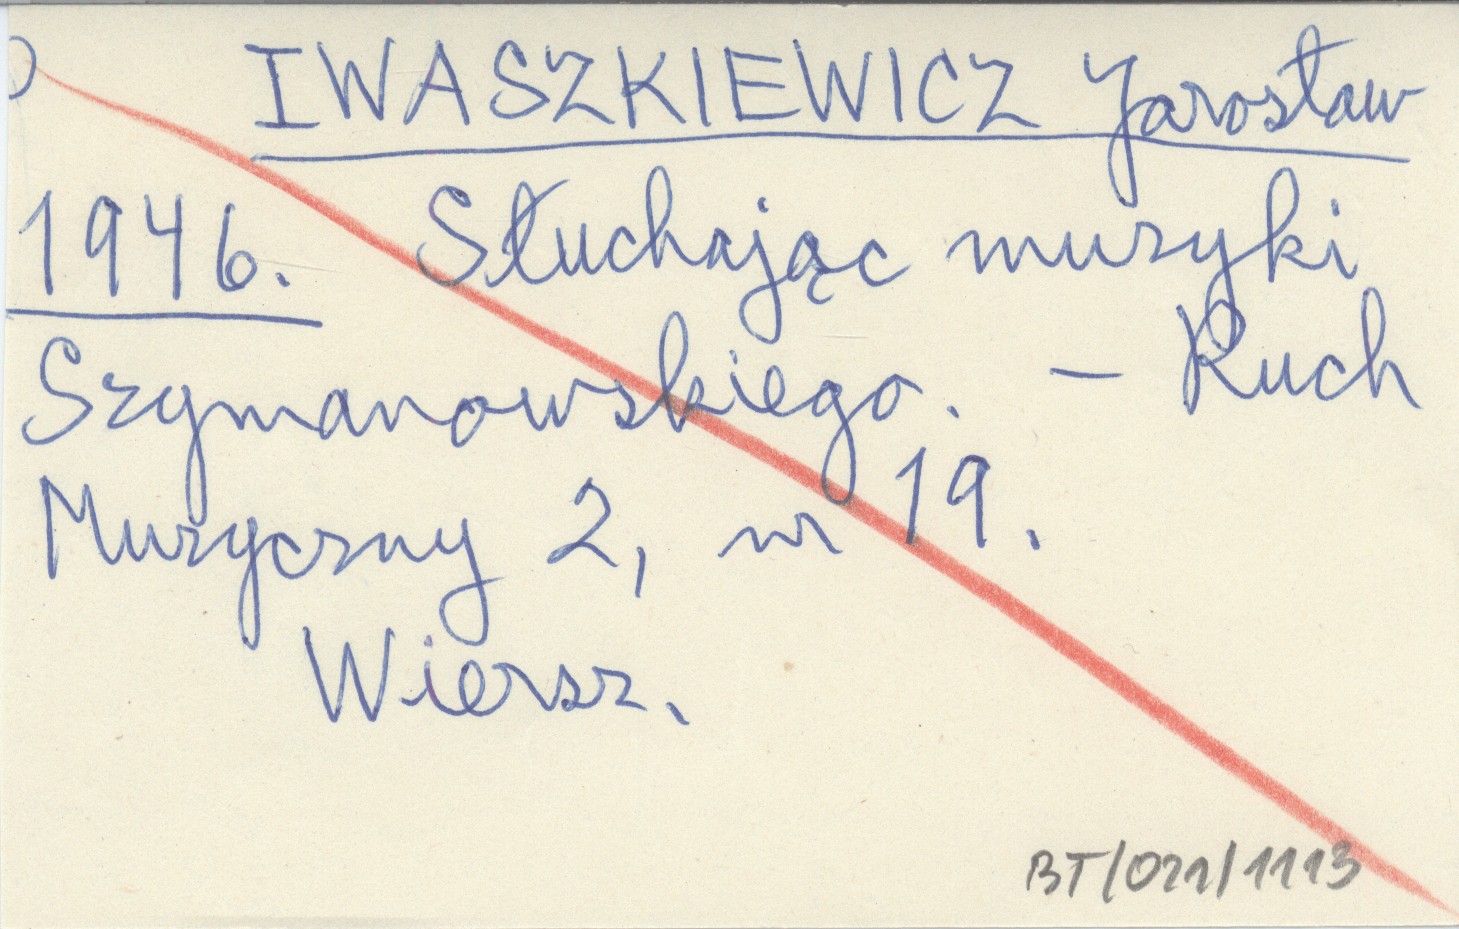 IWASZKIEWICZ Jarosław
1946. Słuchając muzyki
Szymanowskiego. – Ruch
Muzyczny 2, nr 19.
Wiersz.
BT/021/1113